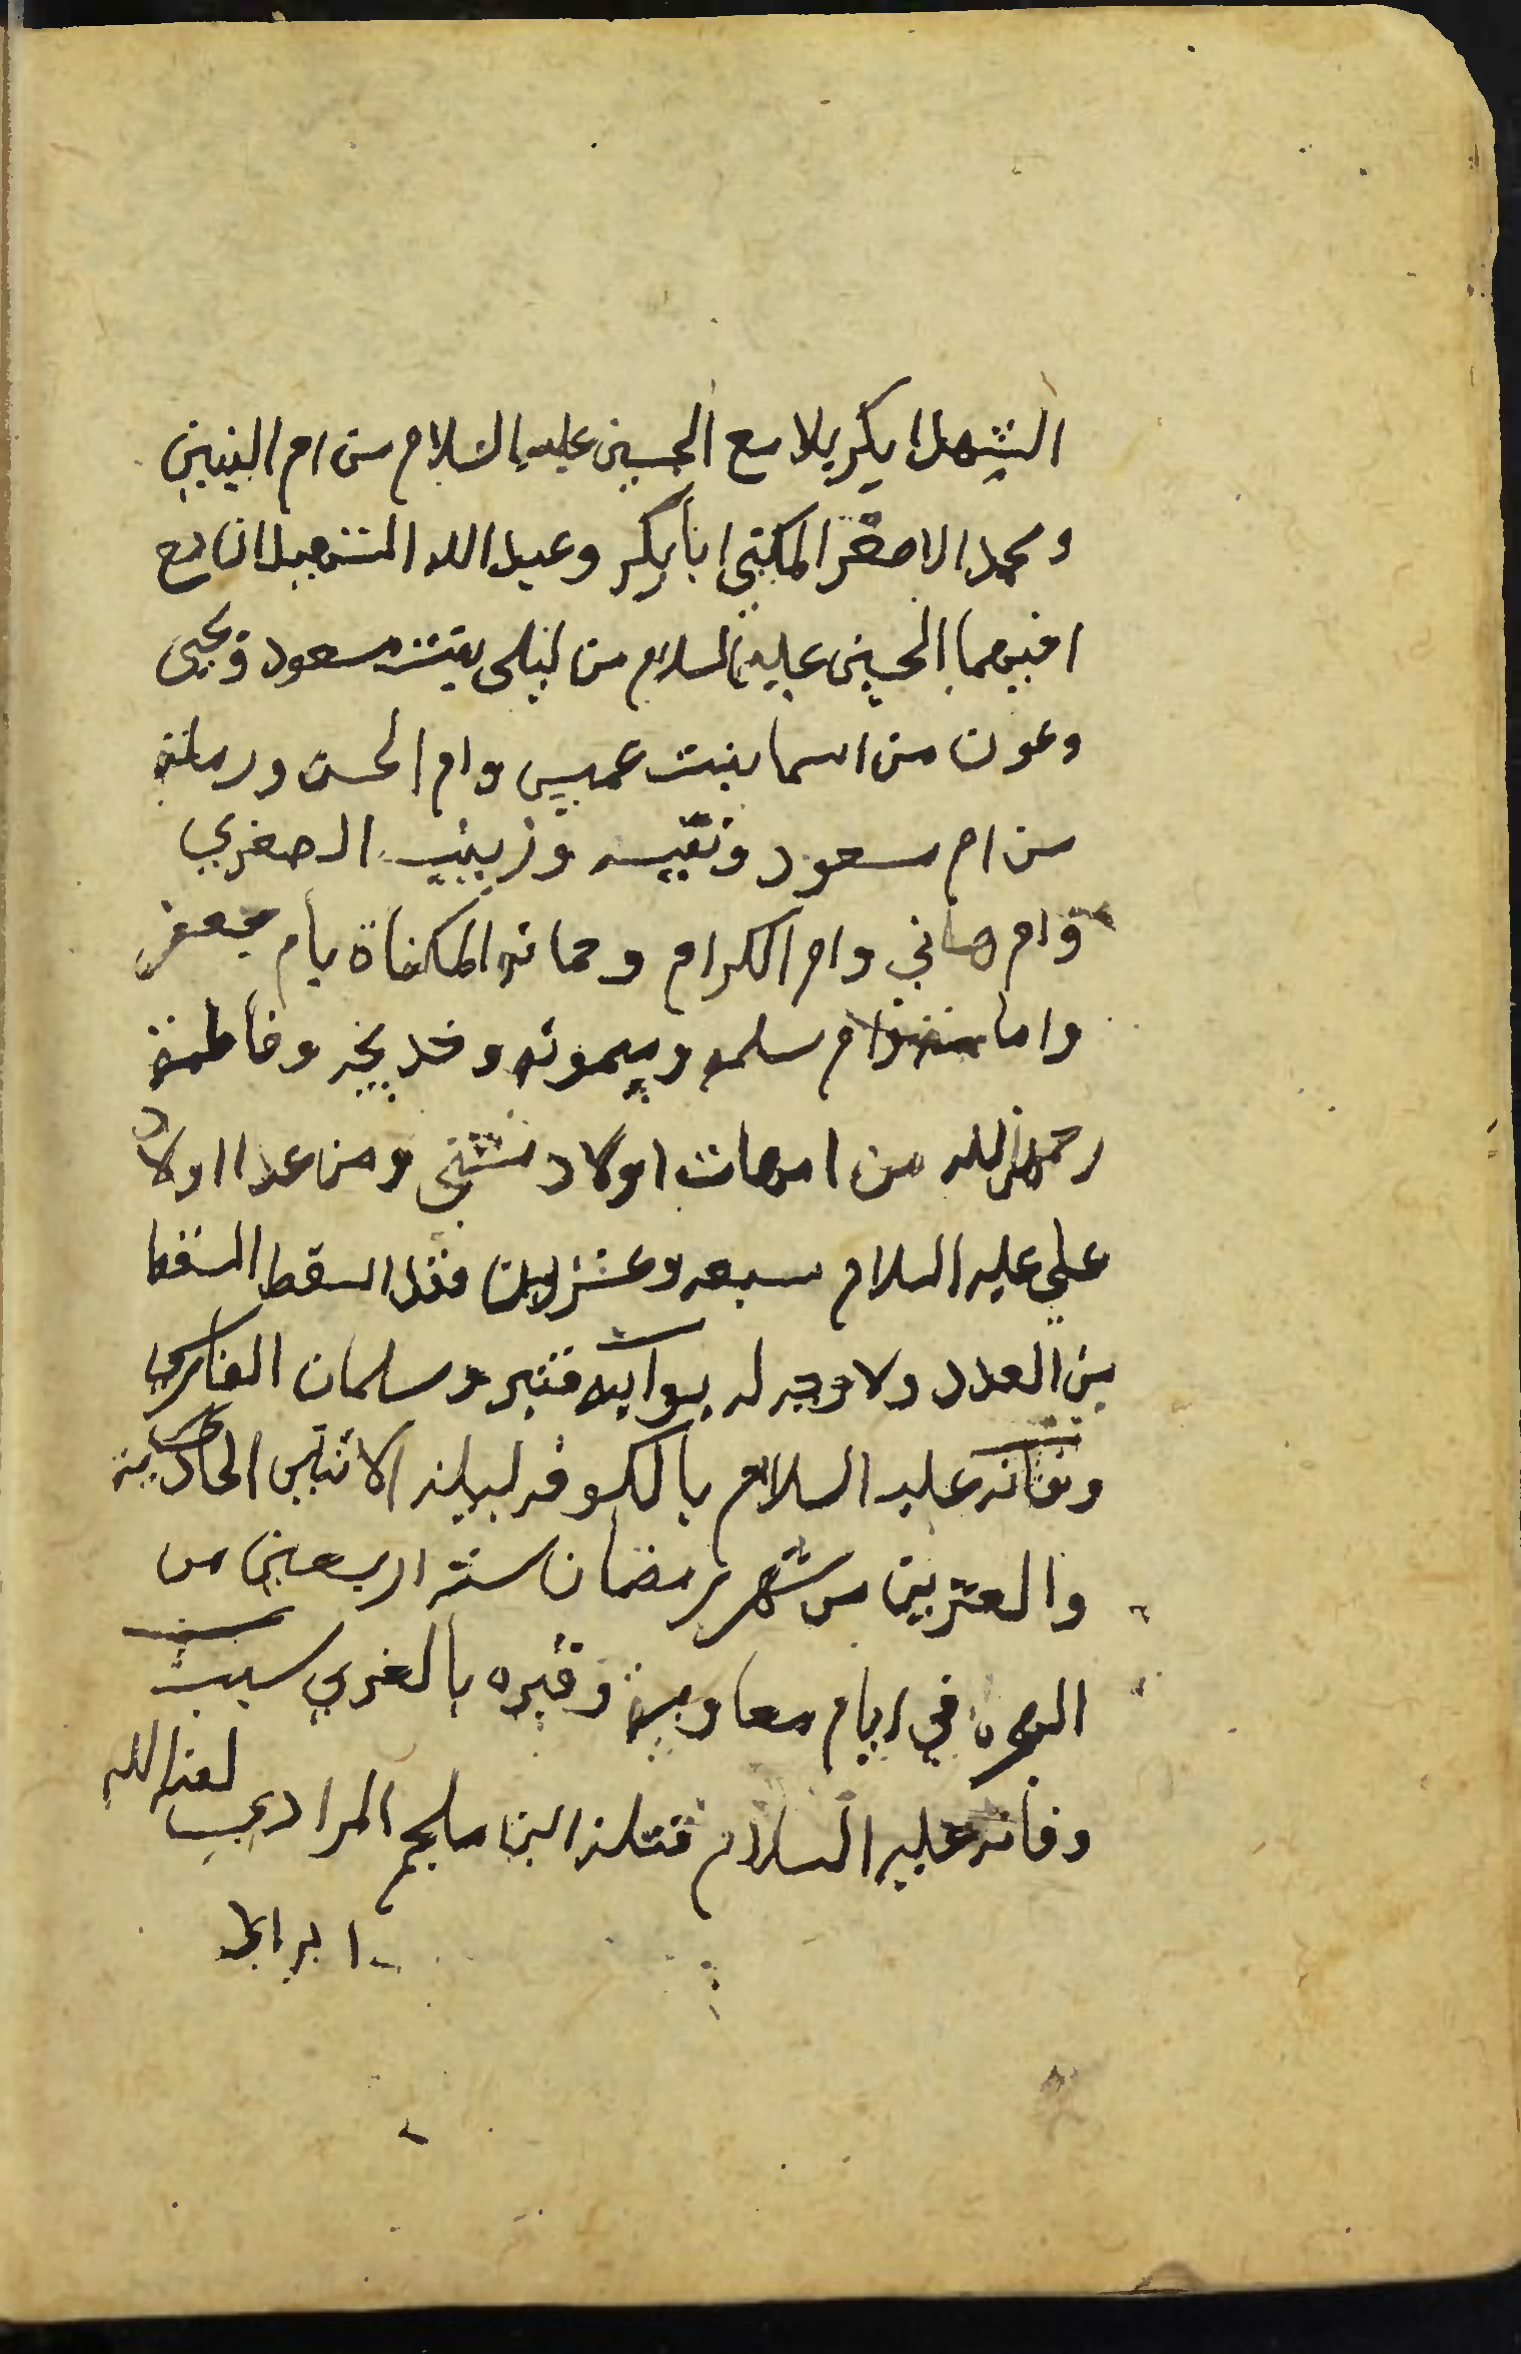 الشهدا بكربلا مع الحسين عليه السلام من ام البنين
ومحمد الاصغر المكنى ابا بكر وعبيد الله الشهيدان مع
اخيهما الحسين عليه السلام من ليلى بنت مسعود ويحيى
وعون من اسما بنت عميس وام الحسن ورملة
من ام مسعود ونفيسه وزينب الصغرى
وام هاني وام الكرام وجمانه المكناة بام جعفر
واما مه وام سلمه وميمونه وخديجه وفاطمة
رحمهن الله من امهات اولاد شتى ومن عدا اولاد
علي عليه السلام سبعه وعشرين فقد اسقط
من العدد ولا وجه له بوابه قنبر وسلمان الفارسي
وفاته عليه السلام بالكوفه ليلة الاثنين الحادية
والعشرين من شهر رمضان سنة اربعين من
الهجرة في ايام معاوية وقبره بالغري سبب
وفاته عليه السلام قتله ابن ملجم المرادي لعنه الله